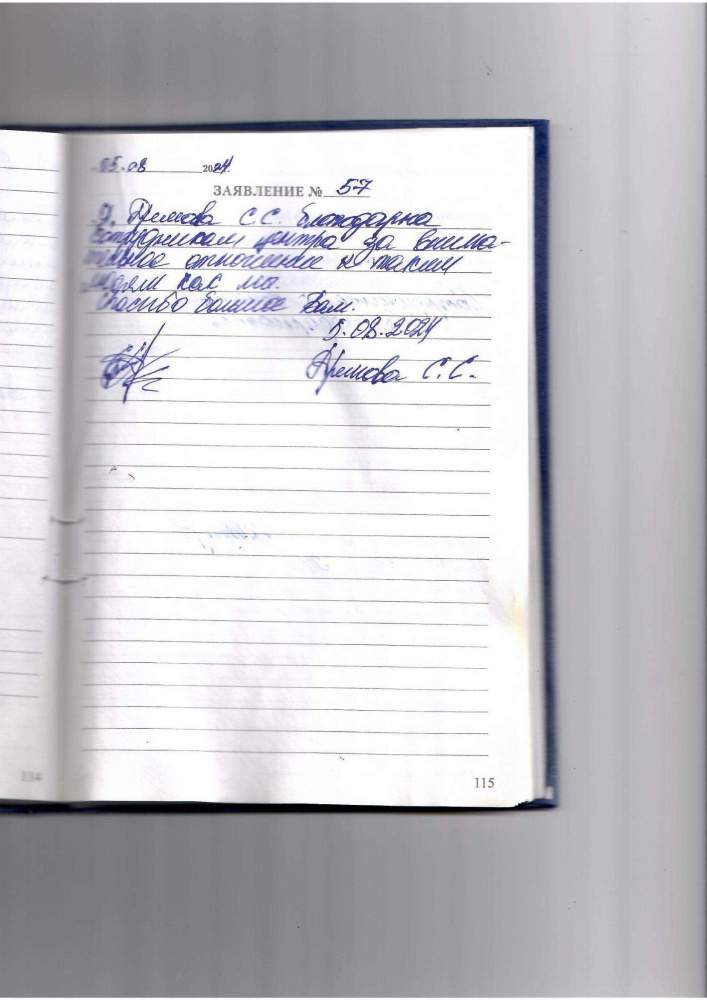 05.08 2024
ЗАЯВЛЕНИЕ № 57
Я, С.С. благодарна
сотрудникам центра за внима-
тельное отношение к таким
людям как мы.
Спасибо большое Вам.
5.08.2024
С.С.
114
115